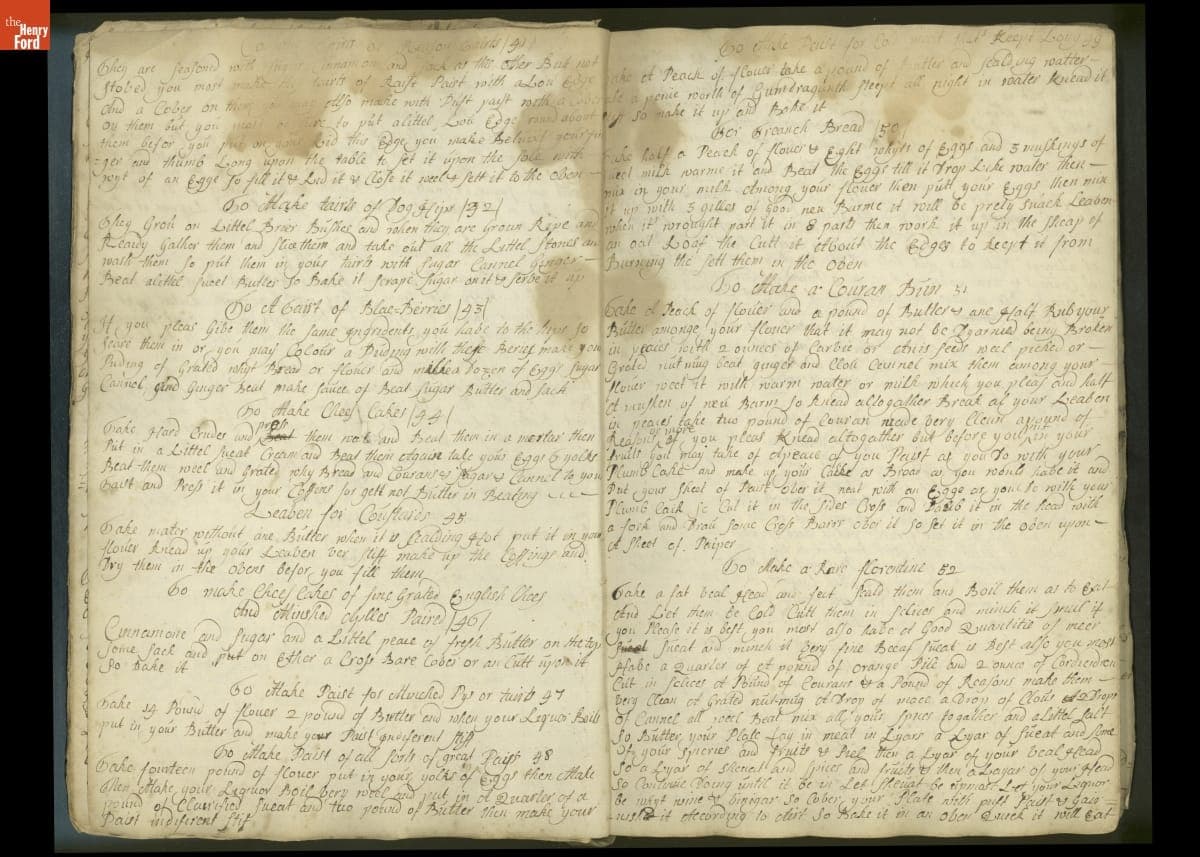 the
Henry
Ford
of Reason tairts |41|
They are seasond with Sugar Cinnamon and Sack as the other But not
Stobed you most make tairts of Raise Paist with a Lou Edge
And a Cober on them you may also make with Puft paist with a Cober
on them but you most be sure to put a littel Lou Edge round about
them befor you put on your Lid this Edge you make Betwixt your fin
=ger and thumb Long upon the table to set it upon the sole with
whyt of an Egge So fill it & Lid it & Close it weel & sett it to the Oben
To Make tairts of Dog Hips |32|
They Grou on Littel Brier Bushes and when they are Groun Ripe and
Ready Gather them and Slice them and take out all the Littel Stones and
wash them so put them in your tairts with Sugar Cannel Ginger
Beat a littel sweet Butter So Bake it scrape Sugar on it & serbe it up
To A taist of Blae=Berries |43|
If you pleas Gibe them the same Ingridents you habe to the hips so
serve them in or you may Colour a Puding with these Beries make you
Puding of Grated whyt Bread or flower and a dozen of Eggs Sugar
Cannel and Ginger Beat make sauce of Beat Sugar Butter and Sack
To Make Chees Cakes |44|
Take Hard Cruds and press them and Beat them in a mortar then
Put in a Littel sweat Cream and Beat them againe take your Eggs 6 yolks
Beat them weel and Grated whyt Bread and Courans & Sugar & Cannel to your
taist and Press it in your Coffens for gett not Butter in Beating
Leaben for Coustards 45
Take water without any Butter when it is scalding Hot put it in your
flower Knead up your Leaben ver stiff make up the Coffings and
Dry them in the obens befor you fill them
To make Chees Cakes of fine Grated English Chees
And Minshed Aplles Paired |46|
Cinnamone and Sugar and a Littel peace of fresh Butter on the top
Some Sack and put on Ether a Cross Bare Cober or an Cutt upon it
So Bake it
To Make Paist for Minched Pys or tairts 47
Take 14 Pound of flower 2 pound of Butter and when your Liquor Boils
put in your Butter and make your Paist indiferent Stiff
To Make Paist of all sorts of great Paists 48
Take fourteen pound of flower put in your yolks of Eggs then Make
then Make your Liquor Boil bery weel and put in a Quarter of a
pound of Clairified Sueat and two pound of Butter then make your
Paist indiferent stif
To Make Paist for Keept Long 49
Take A Peack of flower take a pound of Butter and scalding watter
take a penie worth of Gumdragunth steept all night in water Knead it
So make it up and Bake it
For Freanch Bread |50|
Take half a Peack of flower & Eight whyts of Eggs and 3 mutskings of
sweet milk warme it and Beat the Eggs till it Drop Like water then
mix in your milk among your flower then putt your Eggs then mix
it up with 3 gilles of good neu Barme it will be prety snack Leaben
when it wrought part it in 8 parts then work it up in the sheap of
an oat Loaf the Cutt it about the Edges to keept it from
Burning the sett them in the Oben
To Make a Couran Bun 51
Take A Peack of flower and a pound of Butter & ane Half Rub your
Butter amonge your flower that it may not be Discarned being Broken
in peaces with 2 ounces of Carbie or Anis seeds weel picked or
Grated nutmug beat ginger and Clou Cannel mix them among your
flower weet it with warm water or milk which you pleas and half
A mutsken of neu Barm so knead altogather Break al your Leaben
in peaces take two pound of Couran made bery Clean a pound of
Reasons or more if you pleas Knead altogather but before you put in your
fruits you may take of a peace of your Paist as you Do with your
Plumb Cake and make up your Cake as Broad as you would habe it and
Put your sheet of Paist ober it neat with an Egge as you Do with your
Plumb Caik so Cut it in the sides Cross and it in the head with
a fork and Drau some Cross Barrs ober it So set it in the oben upon
A sheet of Peiper
To Make a Rare florentine 52
Take a fat beal Head and feet scald them and Boil them as to Eat
And Let them be Cold Cutt them in sclices and minsh it smal if
you Please it is best you most also habe A Good Quantitie of
Sueat and minch it bery fine Beeaf sueat is Best also you most
Habe a Quarter of A pound of Orange Pill and 2 ounce of
Cut in sclices A Pound of Courans & a Pound of Reasons make them
Very Clean A Grated nutmug A Drop of mace a Drop of Clous & 2 Drops
of Cannel all weel Beat mix all your spices togather and a littel salt
So Butter your Plate Lay in meat in Lyars a Lyar of sueat and some
of your spiceries and fruits & Peel then a Lyar of your beal Head
So a Lyar of sheuat and spices and fruits & then a Layar of your Head
So Contenue Doing until it be in Let Sheuat be upmost Let your Liquor
be whyt wine & binigar So Cober your Plate with puft Paist & Gair=
nish it According to Airt So Bake it in an Oben Quick it will Eat